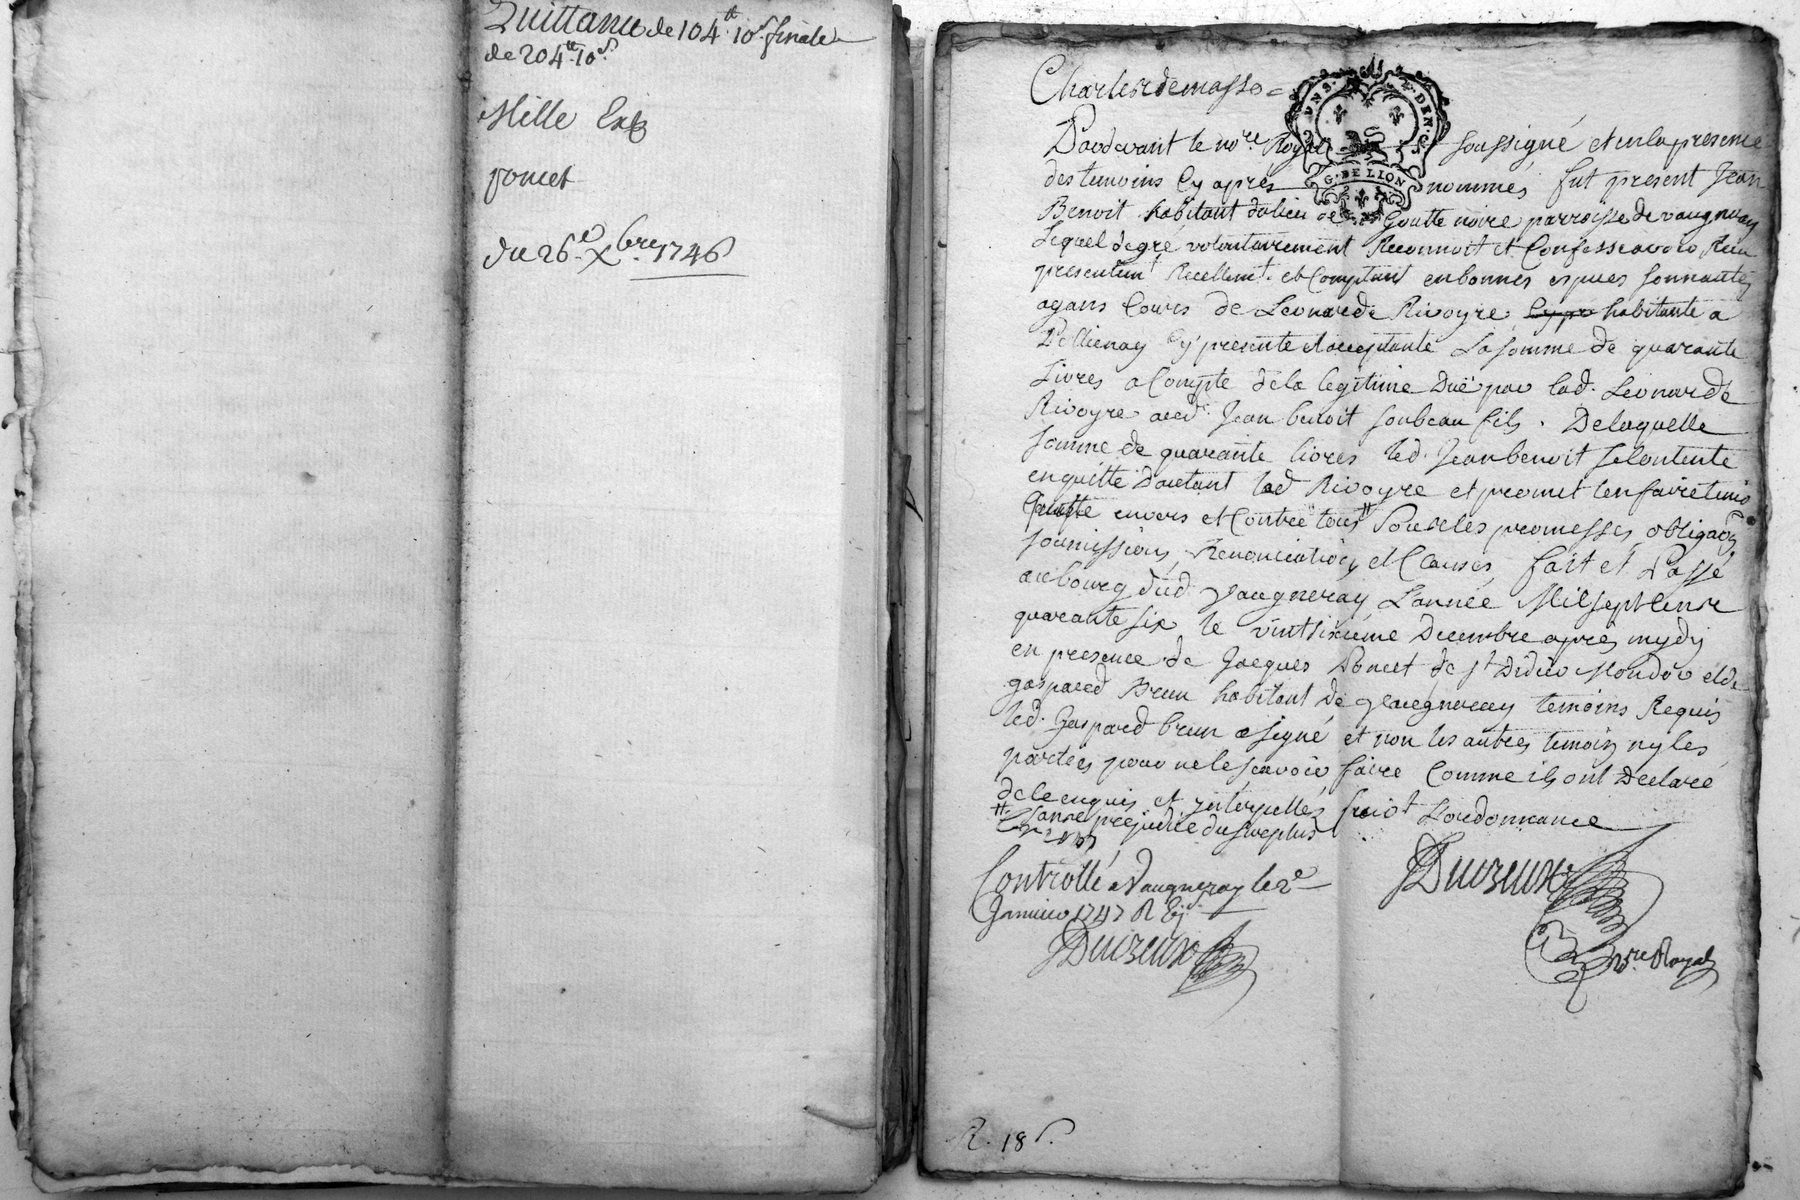 Quittance de 104tt 10s finale
de 204tt 10s
Mille
poncet
du 26e Xbre 1746
Charles demasso
Pardevant le nore Royal soussigné et en la presence
des temoins cy apres nommés fut present Jean
Benoit habitant du lieu de Goutte noire parroisse de vaugneray
Lequel de gré volontairement Reconnoit et Confesse avoir Receu
presentemt Reellemt et Comptant en bonnes especes sonnantes
ayans Cours de Leonarde Rivoyre habitante a
Pollienay Cy presente et acceptante La somme de quarante
Livres a Compte de la legitime Duë par lad. Leonarde
Rivoyre aud. Jean benoit son beau fils. De laquelle
somme de quarante livres led. Jean benoit se Contente
en quitte D'autant lad Rivoyre et promet l'en faire tenir
quitte envers et Contre tous # Sous les promesses, obligaons
soumissions, Renonciations et Clauses fait et Passé
au bourg dud Vaugneray L'année Mil sept Cent
quarante six le vint sixième Decembre apres mydy
en presence de Jacques Poncet de st Didier Mondor et de
gaspard Brun habitant de Vaugneray temoins Requis
led. Gaspard brun a signé et non les autres temoins ny les
parties pour ne le scavoir faire Comme ils ont Declaré
de ce enquis et interpellés suivt L'ordonnance
# sans prejudice du surplus
Controllé a Vaugneray le 2e
Janvier 1747 R
Ducreux
Ducreux
nore Royal
R. 18s.
G. DE LION